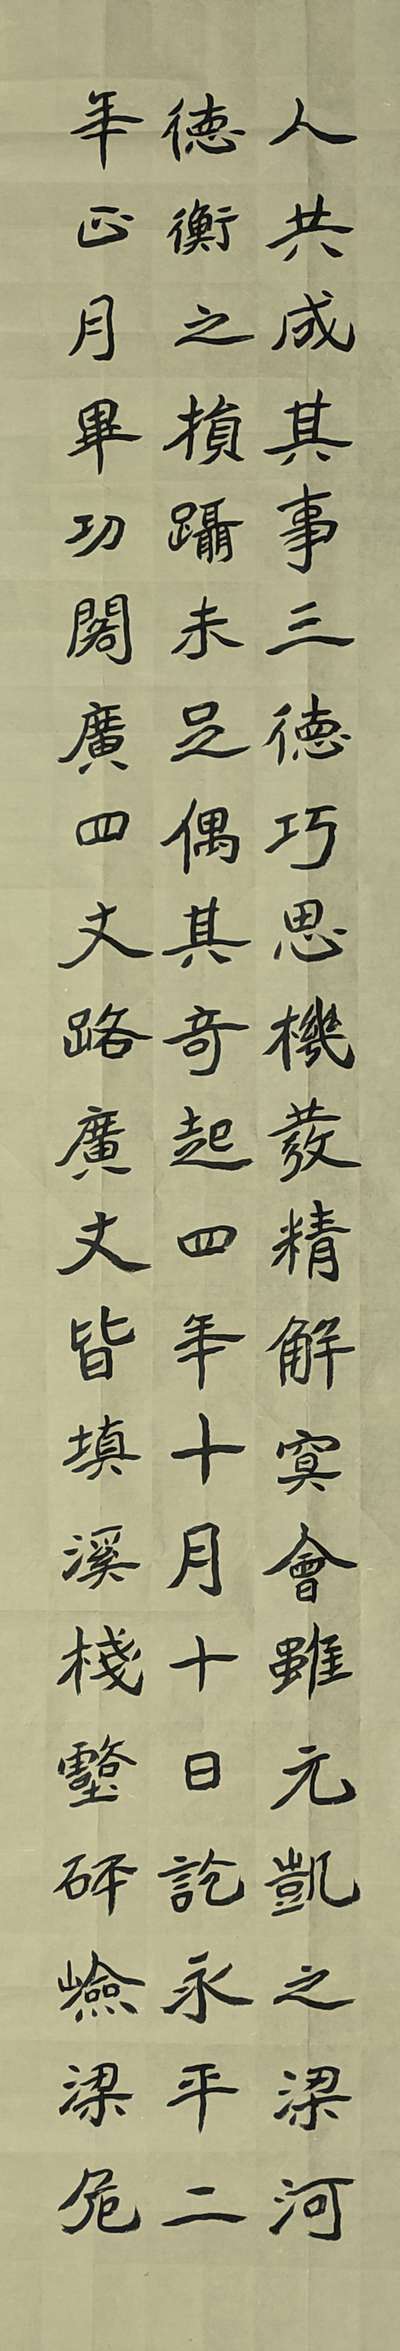 人共成其事三德巧思機發精解冥會雖元凱之梁河
德衡之損躡未足偶其奇起四年十月十日訖永平二
年正月畢功閣廣四丈路廣六丈皆填溪棧壑砰嶮梁危